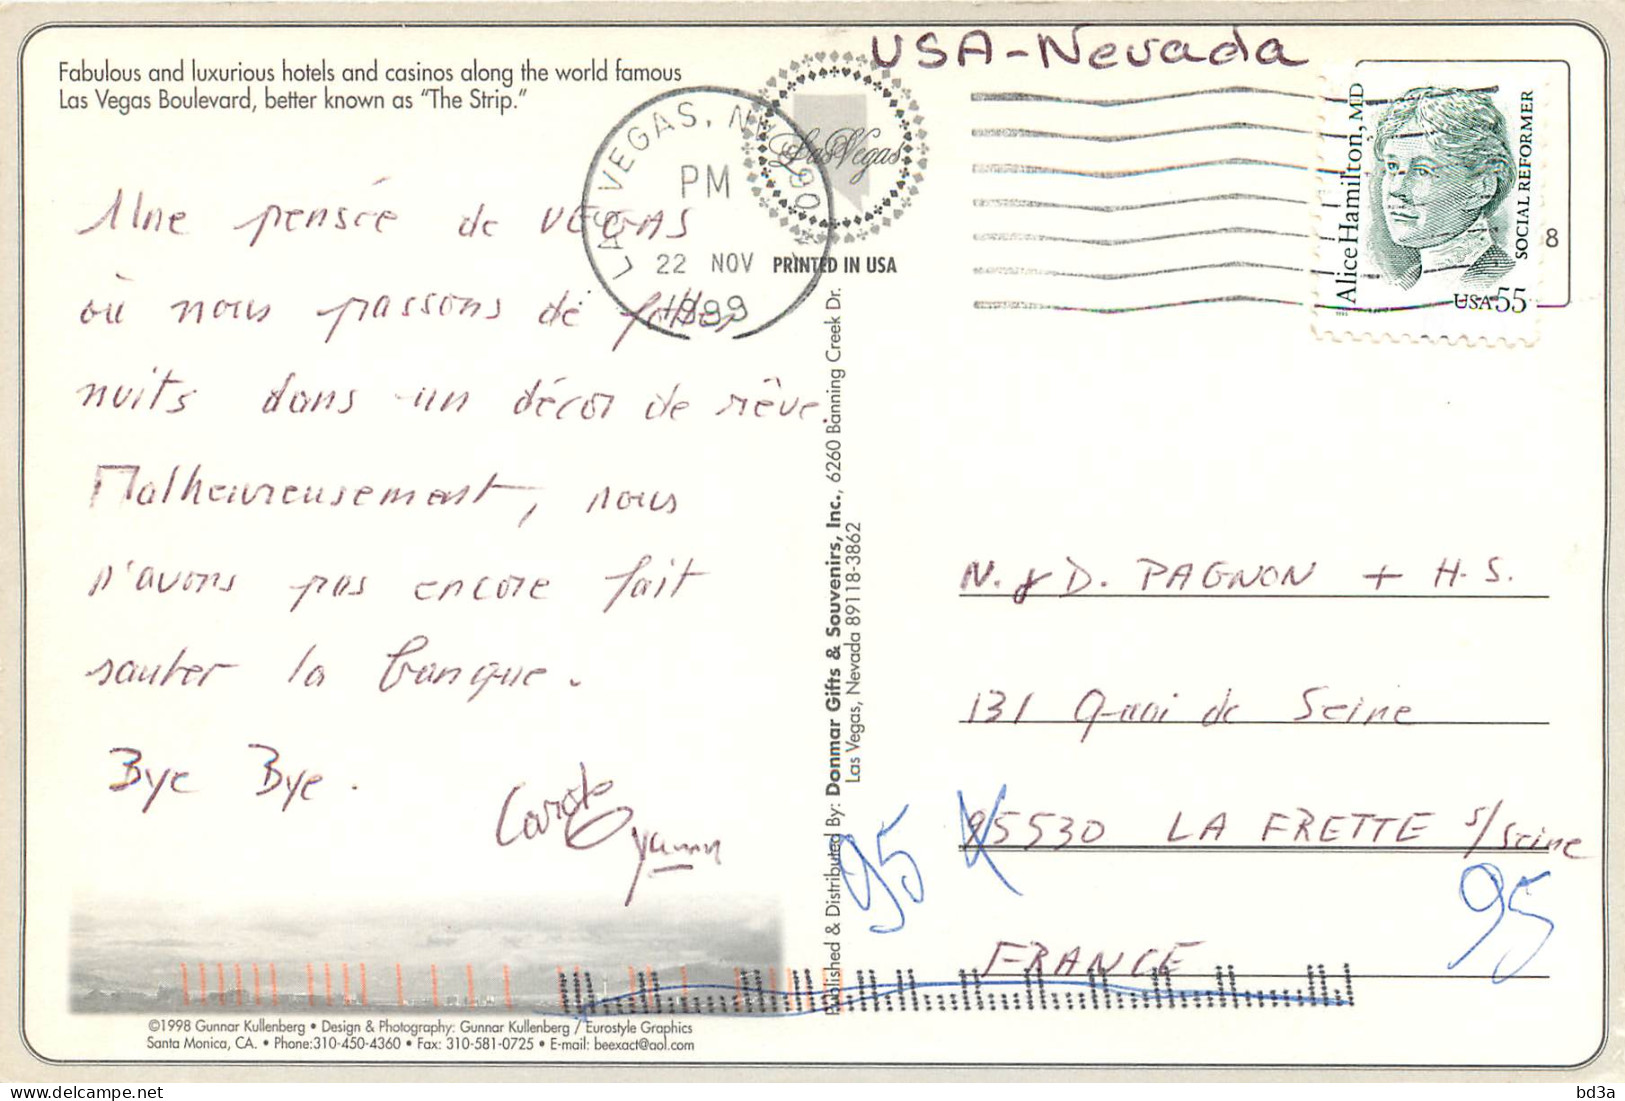 USA-Nevada
Fabulous and luxurious hotels and casinos along the world famous
Las Vegas Boulevard, better known as "The Strip."
LAS VEGAS, NV
PM
22 NOV
1999
Las Vegas
PRINTED IN USA
Alice Hamilton, MD
SOCIAL REFORMER
USA 55
8
Une pensée de VEGAS
où nous passons de folles
nuits dans un décor de rêve.
Malheureusement, nous
n'avons pas encore fait
sauter la banque.
Bye Bye.
Carole
Yann
Published & Distributed By: Donmar Gifts & Souvenirs, Inc., 6260 Banning Creek Dr.
Las Vegas, Nevada 89118-3862
N. & D. PAGNON + H.S.
131 Quai de Seine
95530 LA FRETTE s/Seine
95
95
FRANCE
©1998 Gunnar Kullenberg • Design & Photography: Gunnar Kullenberg / Eurostyle Graphics
Santa Monica, CA. • Phone:310-450-4360 • Fax: 310-581-0725 • E-mail: beexact@aol.com
bd3a